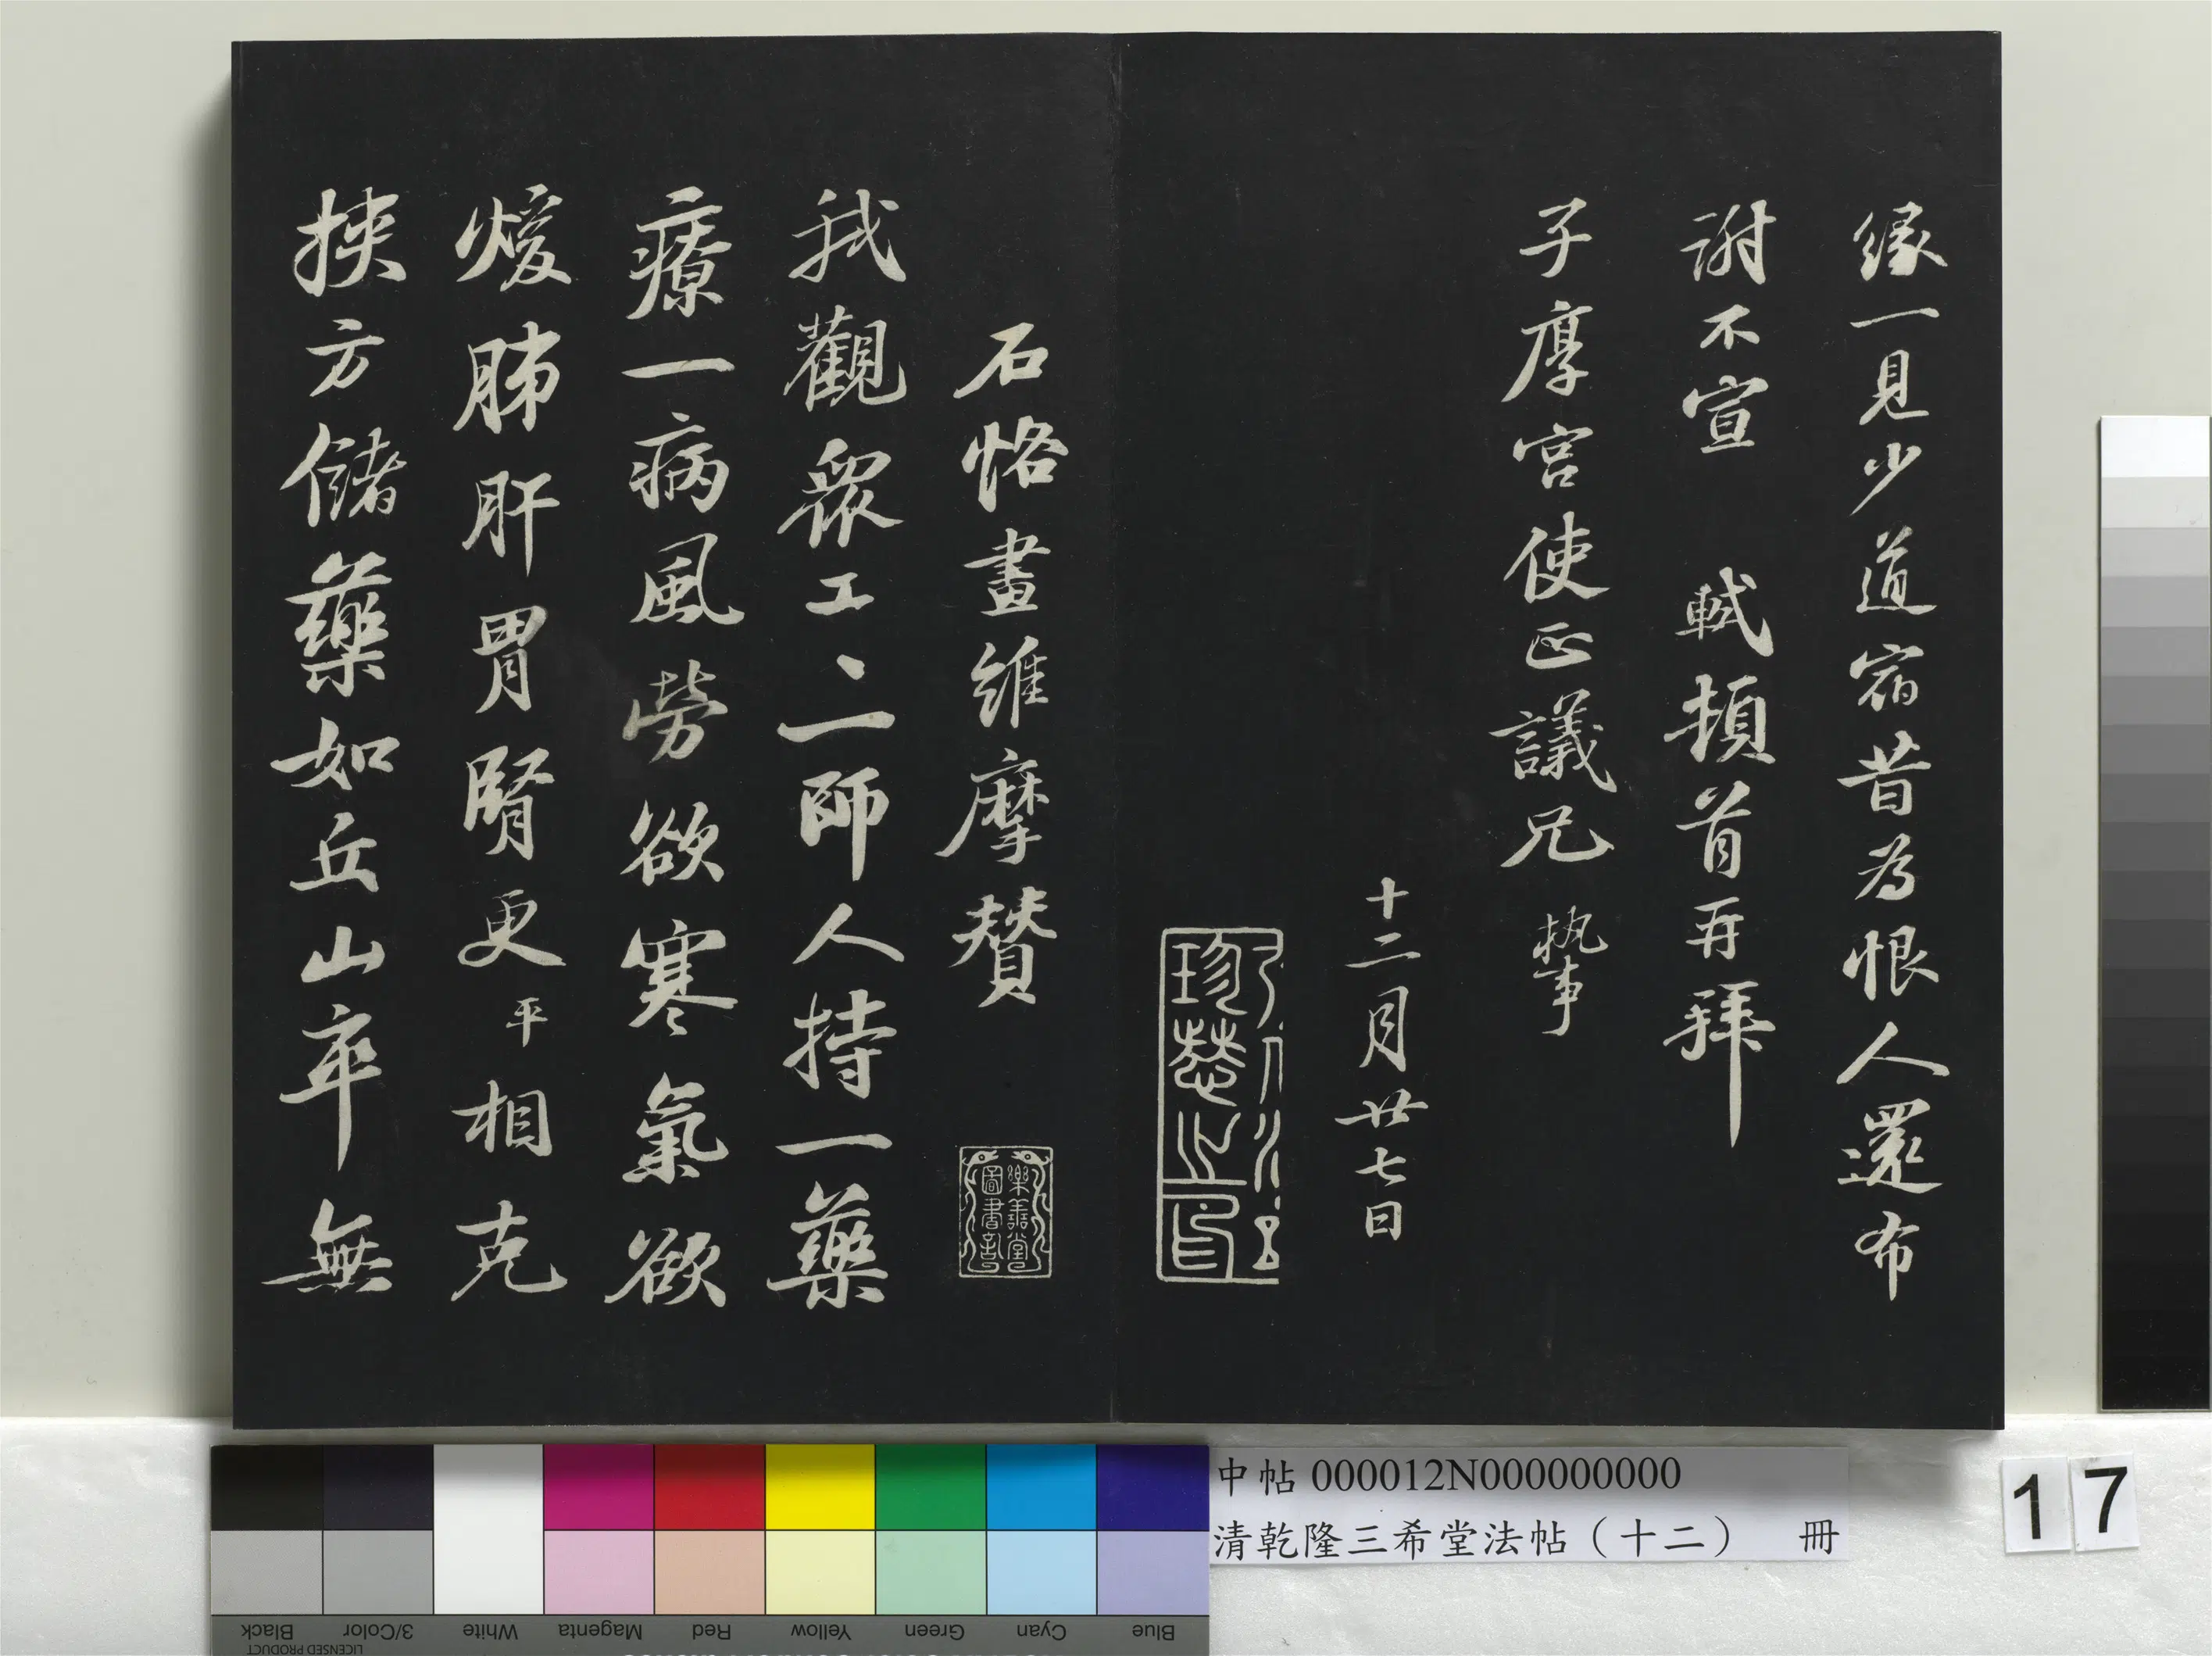 緣一見少道宿昔為恨人還布
謝不宣 軾頓首再拜
子厚宮使正議兄執事
十二月廿七日
石恪畫維摩贊
我觀衆工工一師人持一藥
療一病風勞欲寒氣欲
煖肺肝胃腎更平相克
挾方儲藥如丘山卒無
樂善堂
圖書記
中帖 000012N000000000
清乾隆三希堂法帖（十二） 冊
17
Black
3/Color
White
Magenta
Red
Yellow
Green
Cyan
Blue
LICENSED PRODUCT